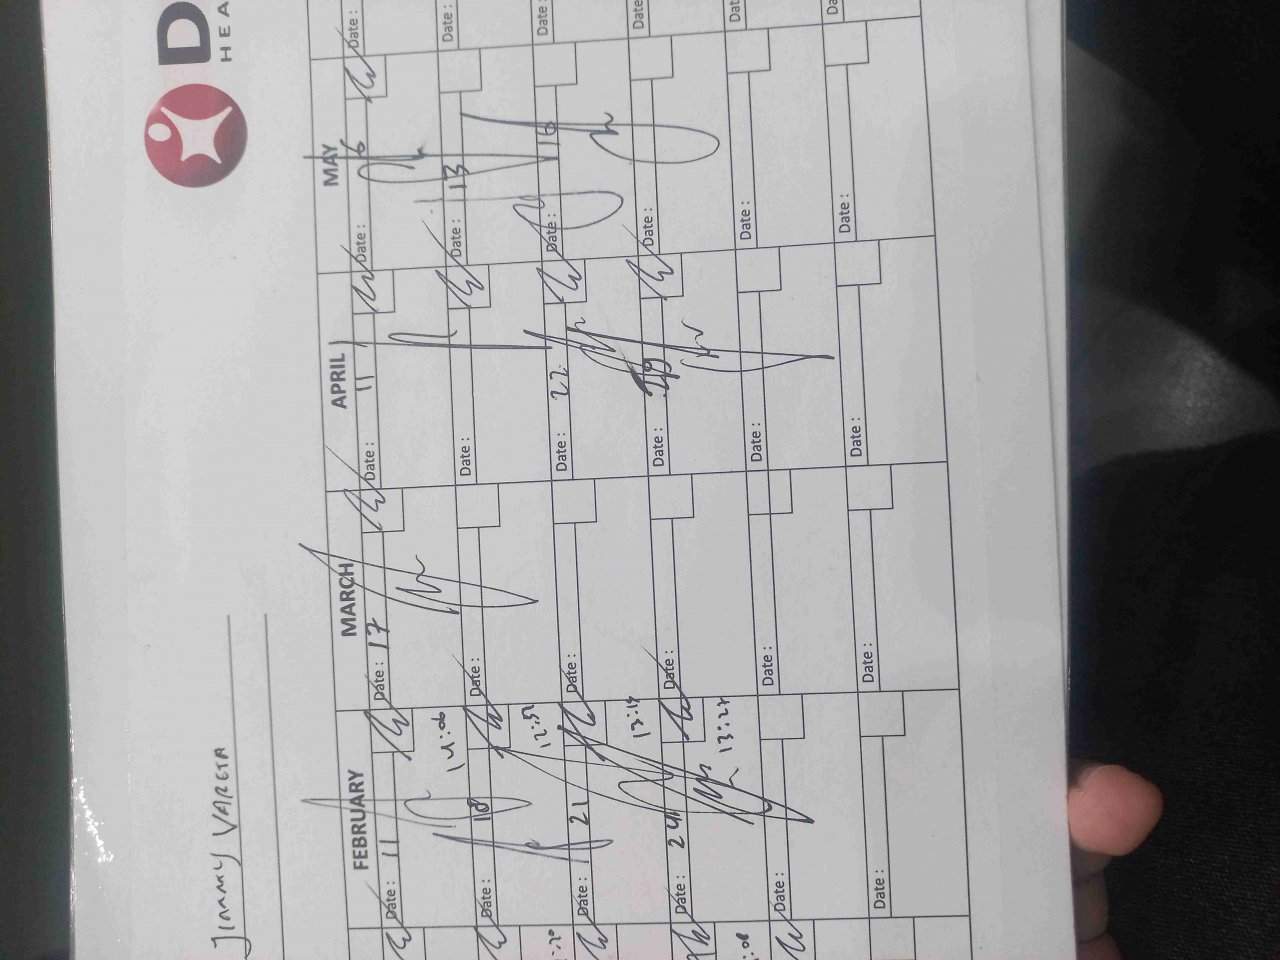 D
HEA
JIMMY VARGTA
FEBRUARY
MARCH
APRIL
MAY
Date : 11
Date : 17
Date : 11
Date : 6
Date :
14:06
Date : 18
Date :
Date :
Date : 13
Date :
12:51
Date : 21
Date :
Date : 22
Date : 18
Date :
Date : 24
Date :
Date : 29
Date :
Date
13:27
Date :
Date :
Date :
Date :
Dat
Date :
Date :
Date :
Date :
Da